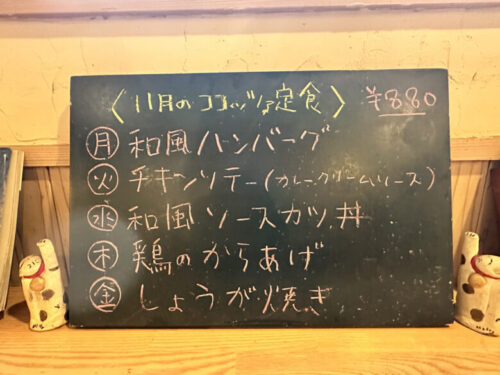 〈11月のココッツァ定食〉 ¥880
月 和風ハンバーグ
火 チキンソテー(カレークリームソース)
水 和風ソースカツ丼
木 鶏のからあげ
金 しょうが焼き